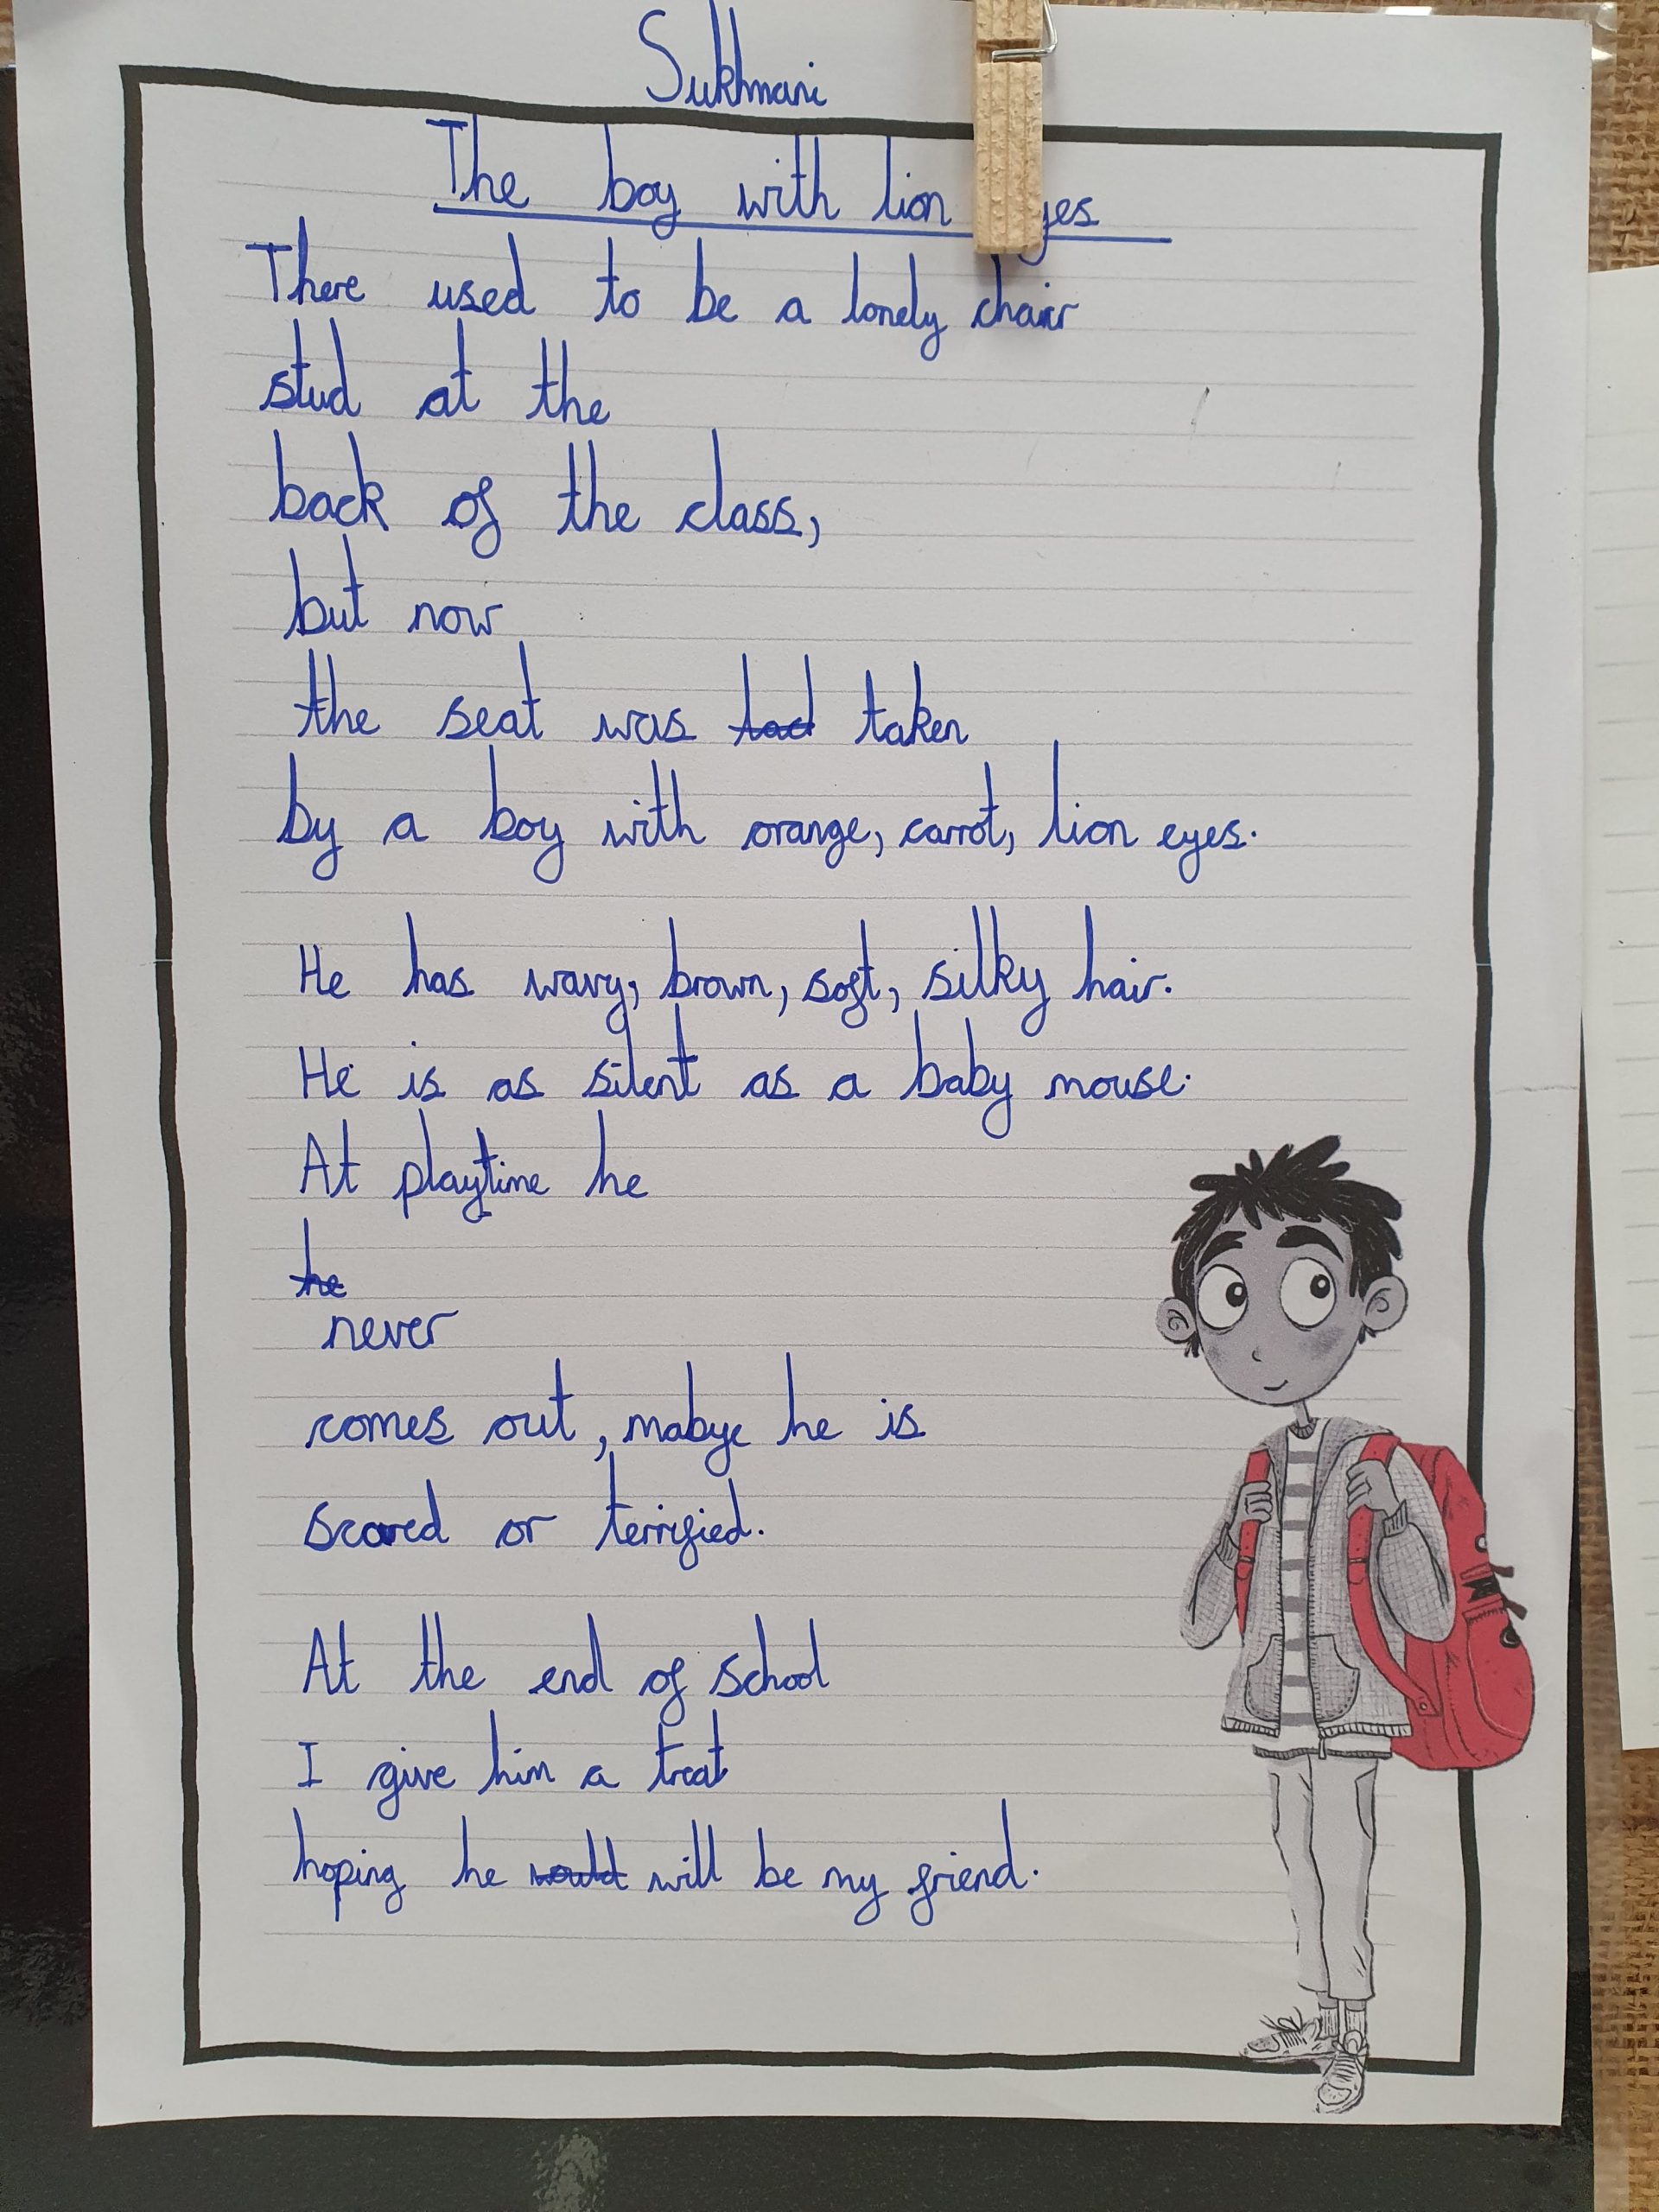 Sukhmani
The boy with lion yes
There used to be a lonely chair
stud at the
back of the class,
but now
the seat was tad taken
by a boy with orange, carrot, lion eyes.
He has wavy, brown, soft, silky hair.
He is as silent as a baby mouse.
At playtime he
he
never
comes out, mabye he is
scared or terrified.
At the end of school
I give him a treat
hoping he would will be my friend.